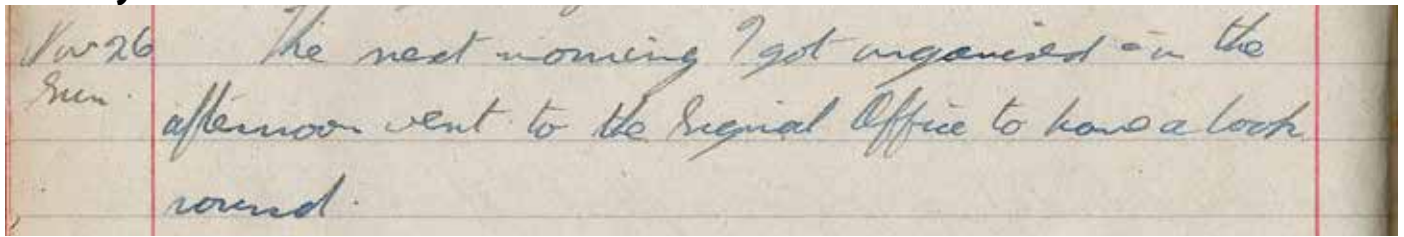 Nov 26 The next morning I got organised - in the
Sun. afternoon went to the Signal Office to have a look
round.